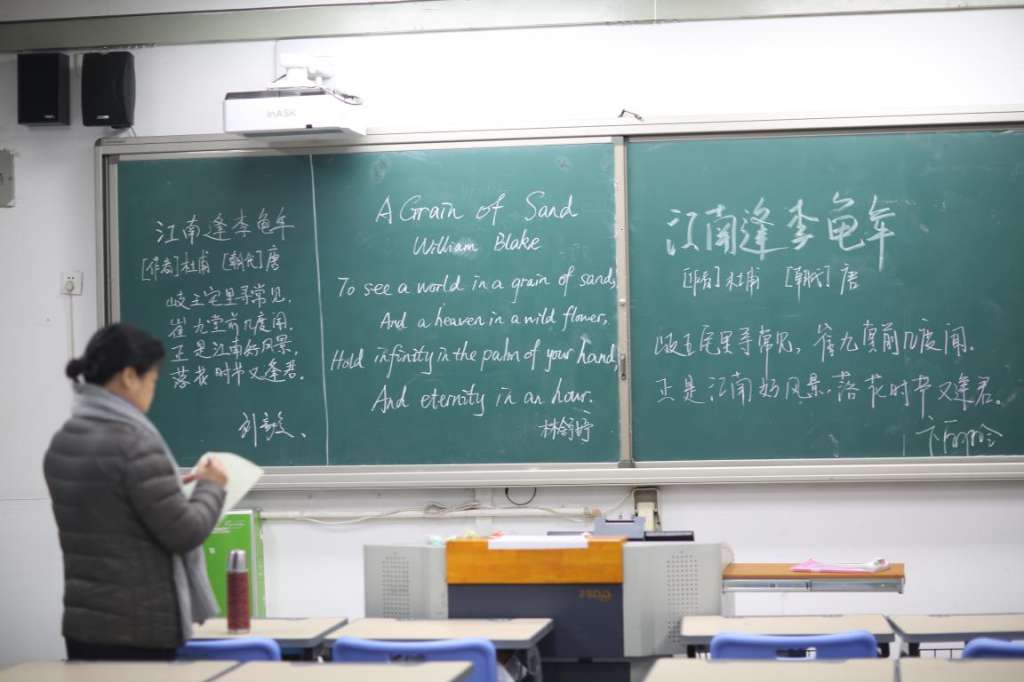 江南逢李龟年
[作者]杜甫 [朝代]唐
岐王宅里寻常见,
崔九堂前几度闻.
正是江南好风景,
落花时节又逢君.
刘毅
A Grain of Sand
William Blake
To see a world in a grain of sand,
And a heaven in a wild flower,
Hold infinity in the palm of your hand,
And eternity in an hour.
江南逢李龟年
[作者]杜甫 [朝代]唐
岐王宅里寻常见, 崔九堂前几度闻.
正是江南好风景, 落花时节又逢君.
INASK